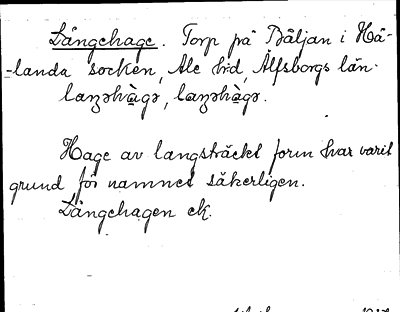 Långehage. Torp på Bäljan i Hå-
-landa socken, Ale hrd, Älfsborgs län.
laŋəhàgə, laŋəhàgə.
Hage av langsträckt form har varit
grund för namnet säkerligen.
Långehagen ek.